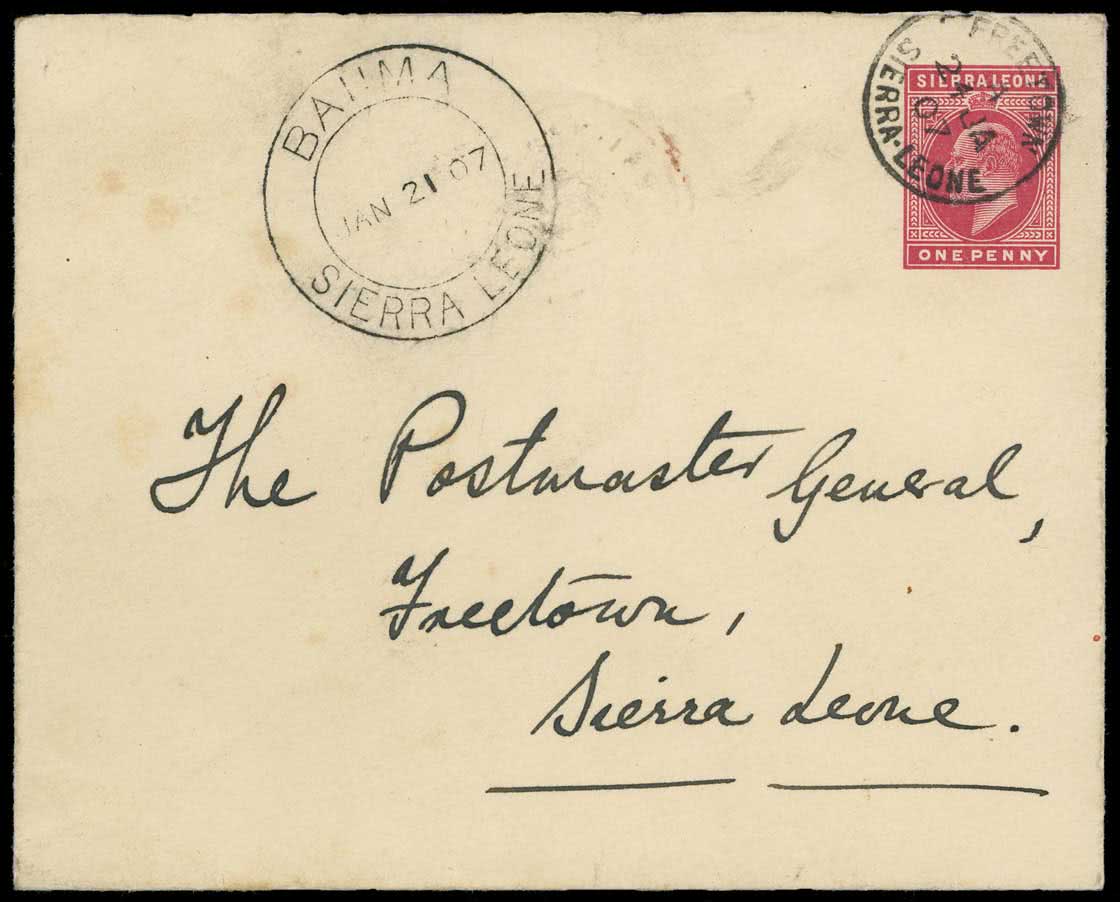 BAIIMA
JAN 21 07
SIERRA LEONE
FREETOWN
24 JA
07
SIERRA·LEONE
SIERRA LEONE
ONE PENNY
The Postmaster General,
Freetown,
Sierra Leone.